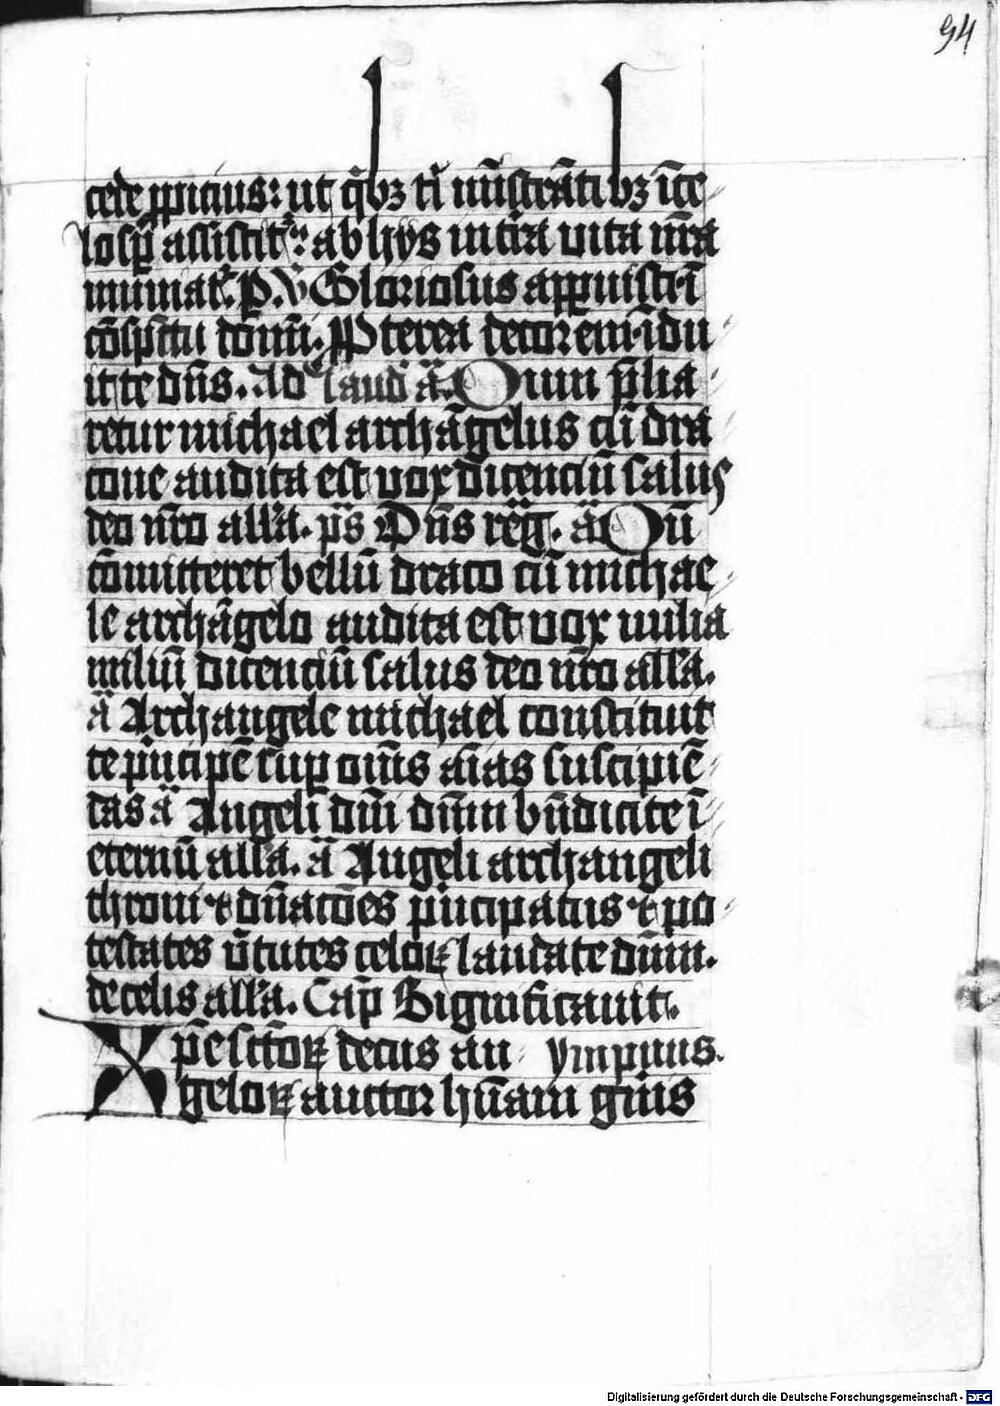 94
cede ꝓpicius: ut q̄bꝫ t̄ mīstrātibꝫ ī ce
lo sp̄ assistit᷑: ab hijs in t̄ra vita nr̄a
muniat᷑. P. v̄ Gloriosus apparuisti ī
cōspctu domī. Ppterea decorem īdu
it te dn̄s. Ad laud ā. Dum p̄lia
retur michael archāgelus cū dra
cone audita est vox dicenciū salus
deo nr̄o all'a. p̄s Dn̄s reg. ā Dū
cōmitteret bellū draco cū michae
le archāgelo audita est vox milia
miliū dicenciū salus deo nr̄o all'a.
ā Archangele michael constitui
te p̄ncipē sup om̄s aīas suscipiē
das ā Angeli dn̄i dn̄m bn̄dicite ī
eternū all'a. ā Angeli archangeli
throni ⁊ dn̄atōes p̄ncipatus ⁊ po
testates v̄tutes celoꝝ laudate dn̄m.
de celis all'a. Cap̄ Significavit.
Xpē sctōꝝ decus an ympnus.
geloꝝ auctor hūani gn̄is
Digitalisierung gefördert durch die Deutsche Forschungsgemeinschaft - DFG